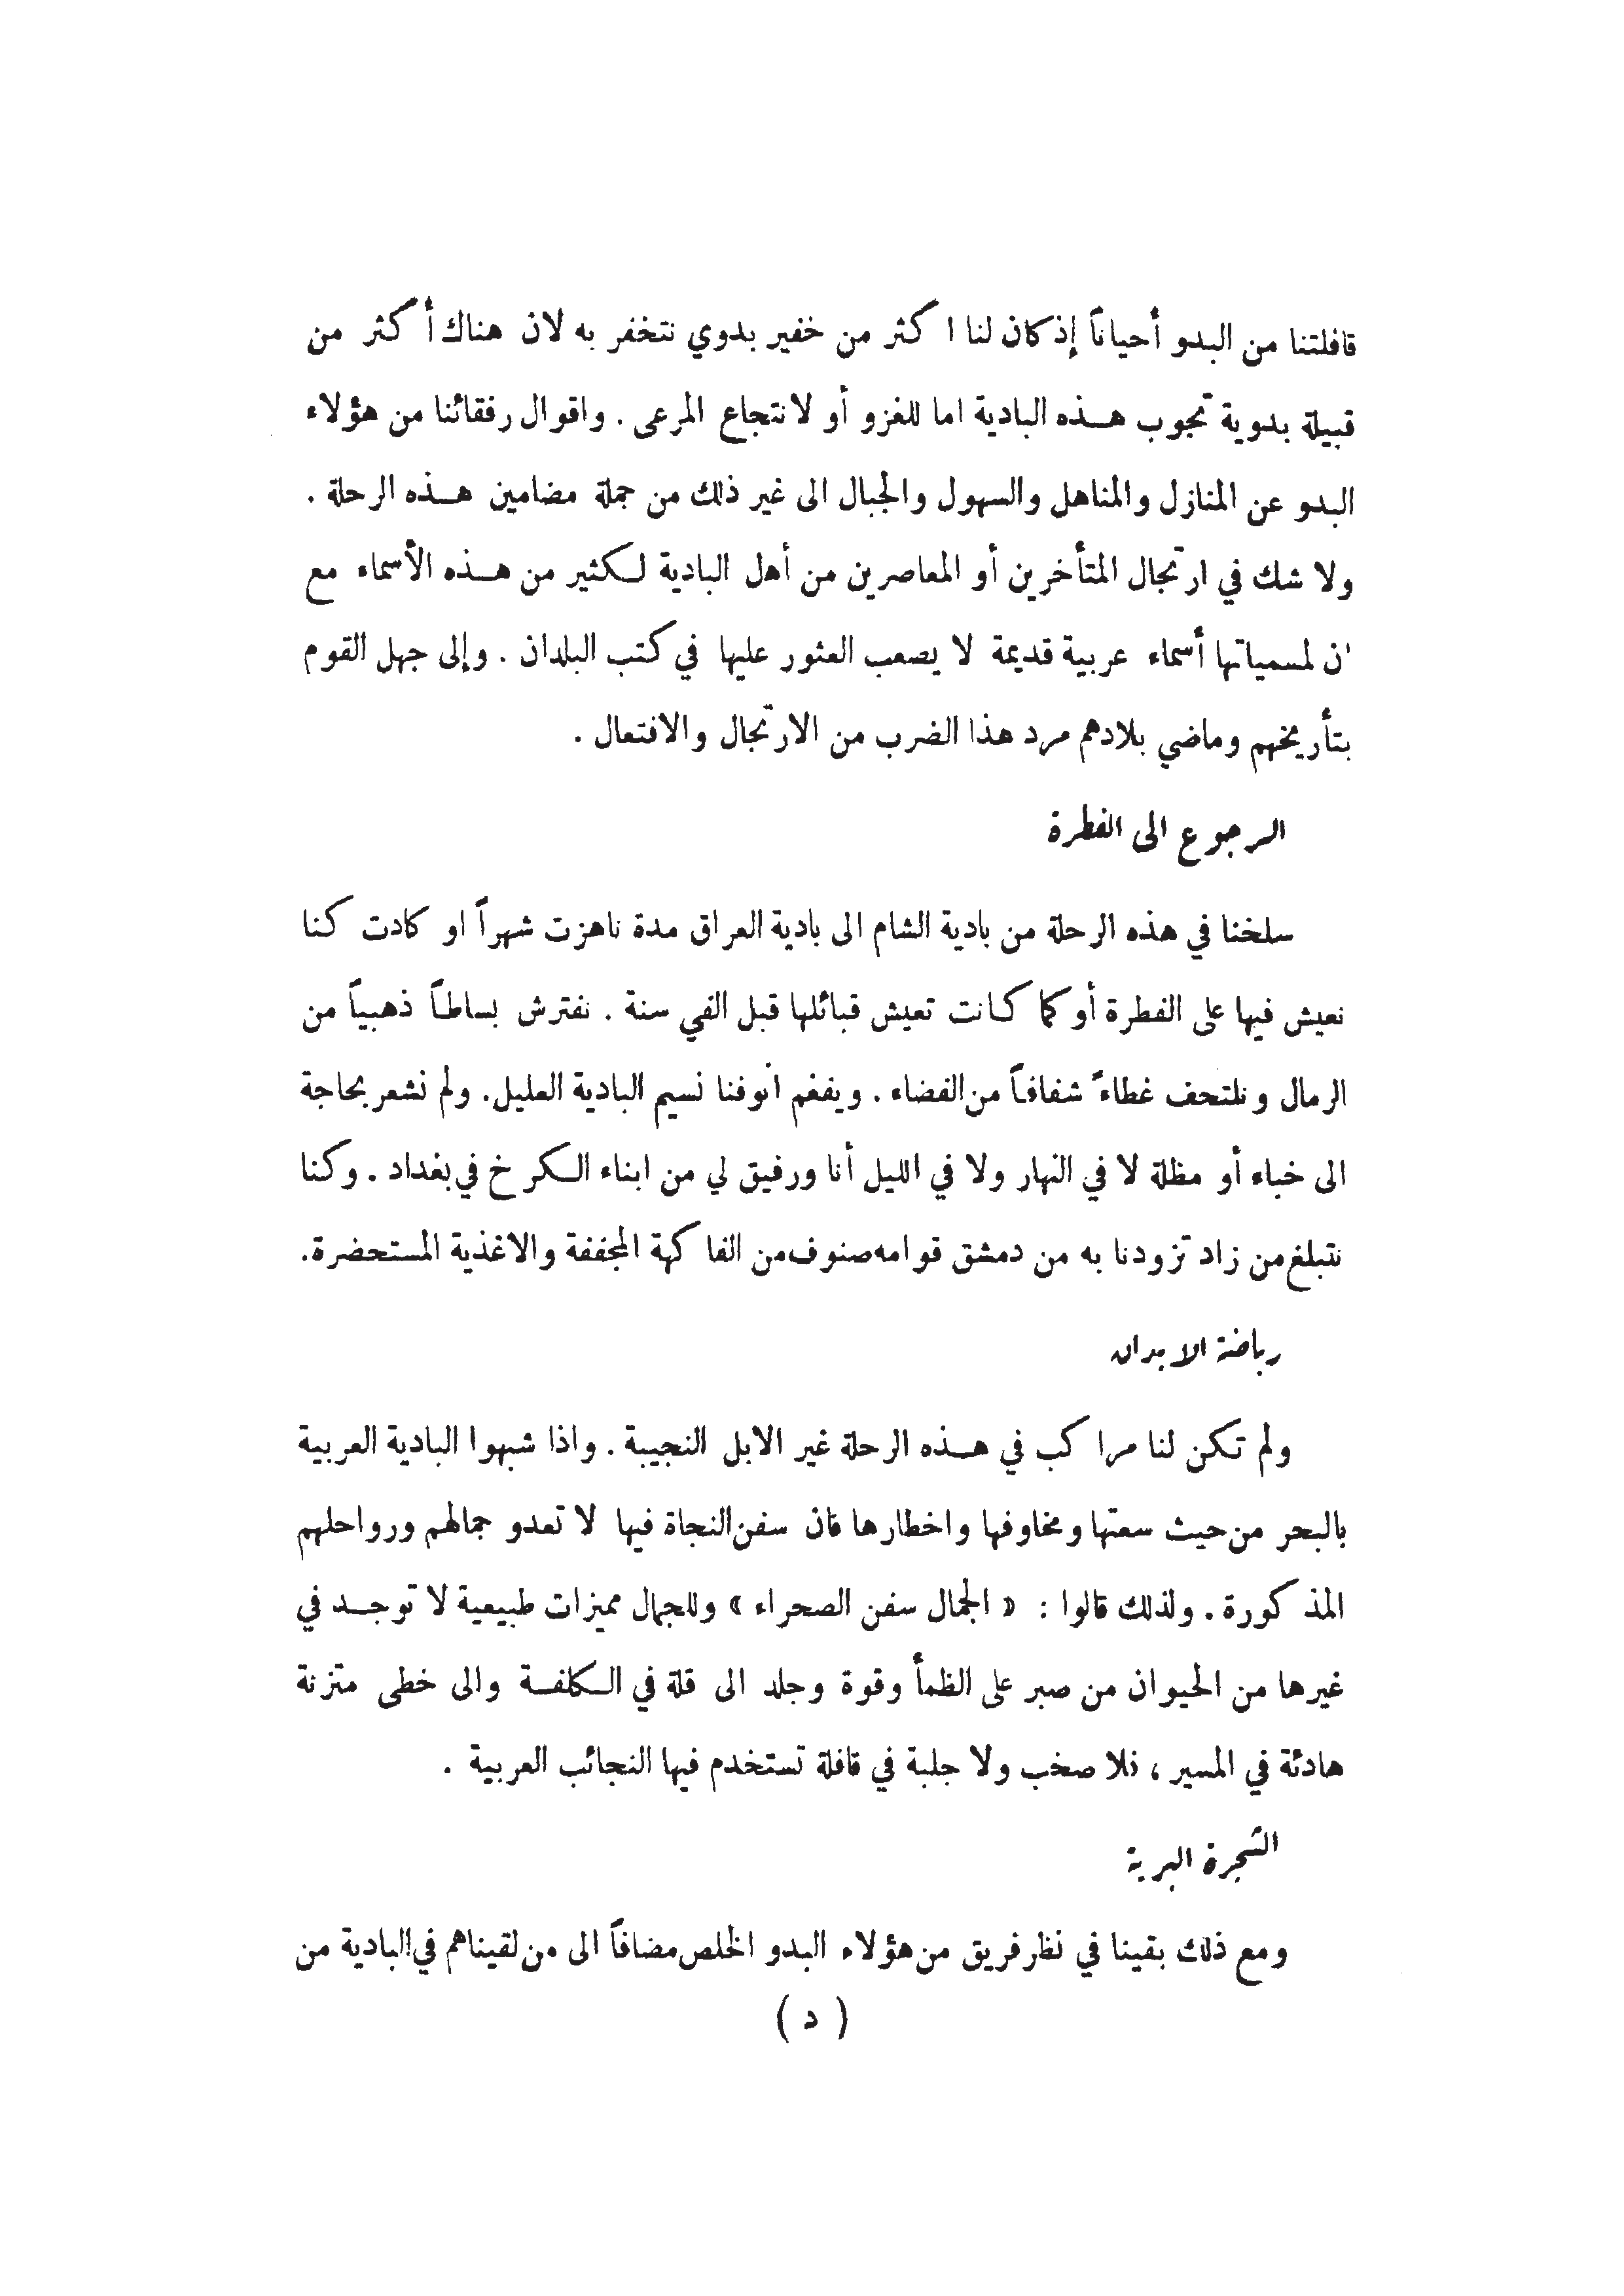 قافلتنا من البدو أحياناً إذ كان لنا اكثر من خفير بدوي نتخفر به لان هناك أكثر من
قبيلة بدوية تجوب هـذه البادية اما للغزو أو لانتجاع المرعى . واقوال رفقائنا من هؤلاء
البدو عن المنازل والمناهل والسهول والجبال الى غير ذلك من جملة مضامين هـذه الرحلة .
ولا شك في ارتجال المتأخرين أو المعاصرين من أهل البادية لـكثير من هـذه الأسماء مع
ان لمسمياتها أسماء عربية قديمة لا يصعب العثور عليها في كتب البلدان . وإلى جهل القوم
بتأريخهم وماضي بلادهم مرد هذا الضرب من الارتجال والافتعال .
الرجوع الى الفطرة
سلخنا في هذه الرحلة من بادية الشام الى بادية العراق مدة ناهزت شهراً او كادت كنا
نعيش فيها على الفطرة أو كما كـانت تعيش قبائلها قبل الفي سنة . نفترش بساطـاً ذهبياً من
الرمال ونلتحف غطاءً شفافـاً من الفضاء . ويفغم انوفنا نسيم البادية العليل. ولم نشعر بحاجة
الى خباء أو مظلة لا في النهار ولا في الليل أنا ورفيق لي من ابناء الـكرخ في بغداد . وكنا
نتبلغ من زاد تزودنا به من دمشق قوامه صنوف من الفاكهة المجففة والاغذية المستحضرة.
رياضة الابدان
ولم تـكن لنا مراكب في هـذه الرحلة غير الابل النجيبة . واذا شبهوا البادية العربية
بالبحر من حيث سعتها ومخاوفها واخطارها فان سفن النجاة فيها لا تعدو جمالهم ورواحلهم
المذكورة . ولذلك قالوا : « الجمال سفن الصحراء » وللجمال مميزات طبيعية لا توجـد في
غيرها من الحيوان من صبر على الظمأ وقوة وجلد الى قلة في الـكلفـة والى خطى متزنة
هادئة في المسير ، فلا صخب ولا جلبة في قافلة تستخدم فيها النجائب العربية .
الشجرة البرية
ومع ذلك بقينا في نظر فريق من هؤلاء البدو الخلص مضافاً الى من لقيناهم في البادية من
( د )